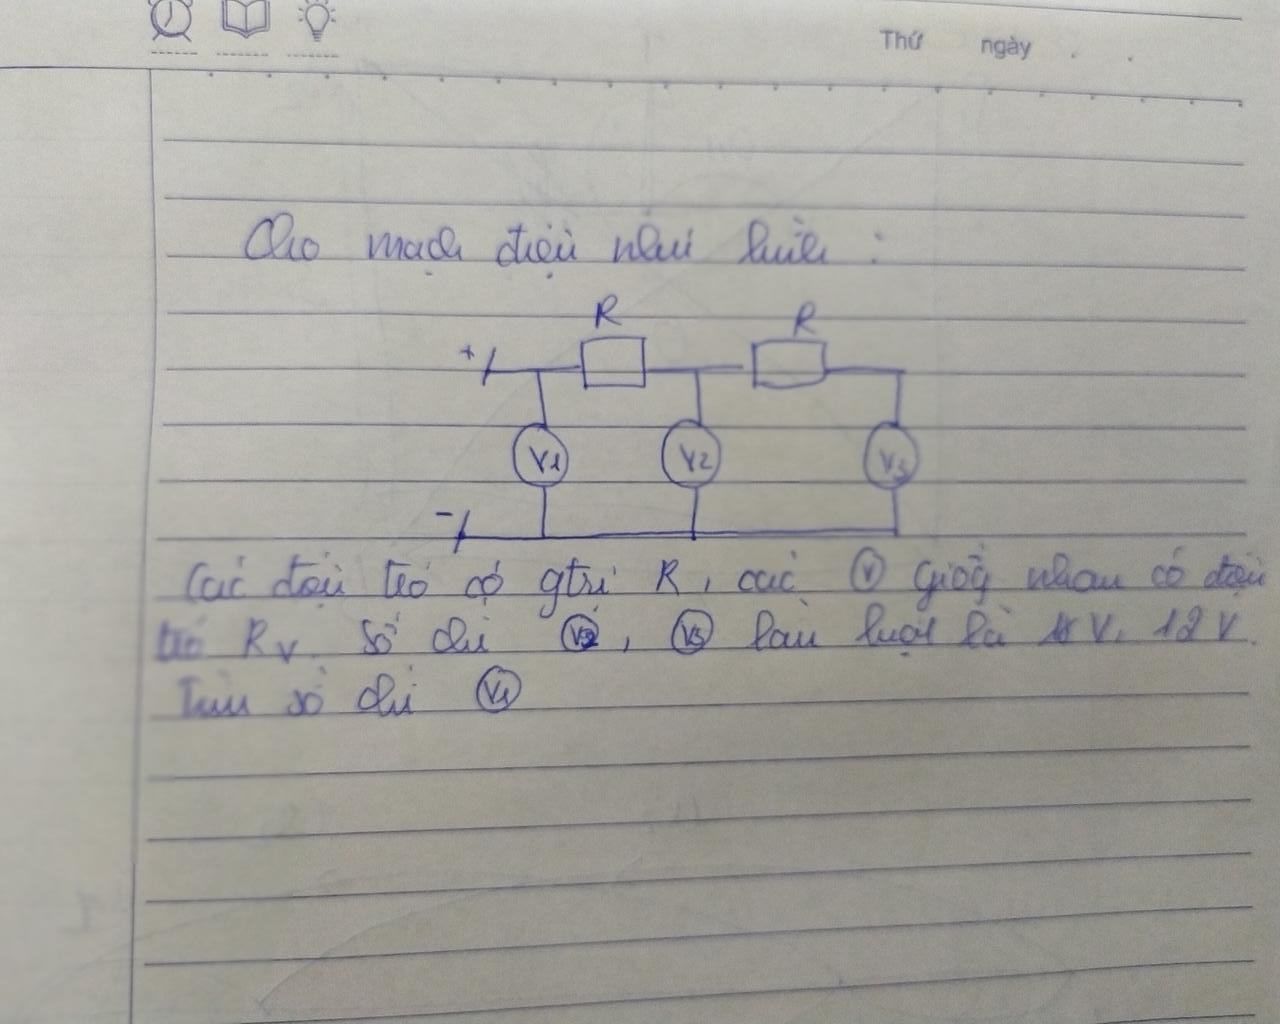 Thứ ngày . .
Cho mạch điện như hình :
R R
+
V1 V2 V3
-
Các điện trở có gtrị R, các V giống nhau có điện
trở Rv. Số chỉ V2, V3 lần lượt là V, 12 V.
Tìm số chỉ V1